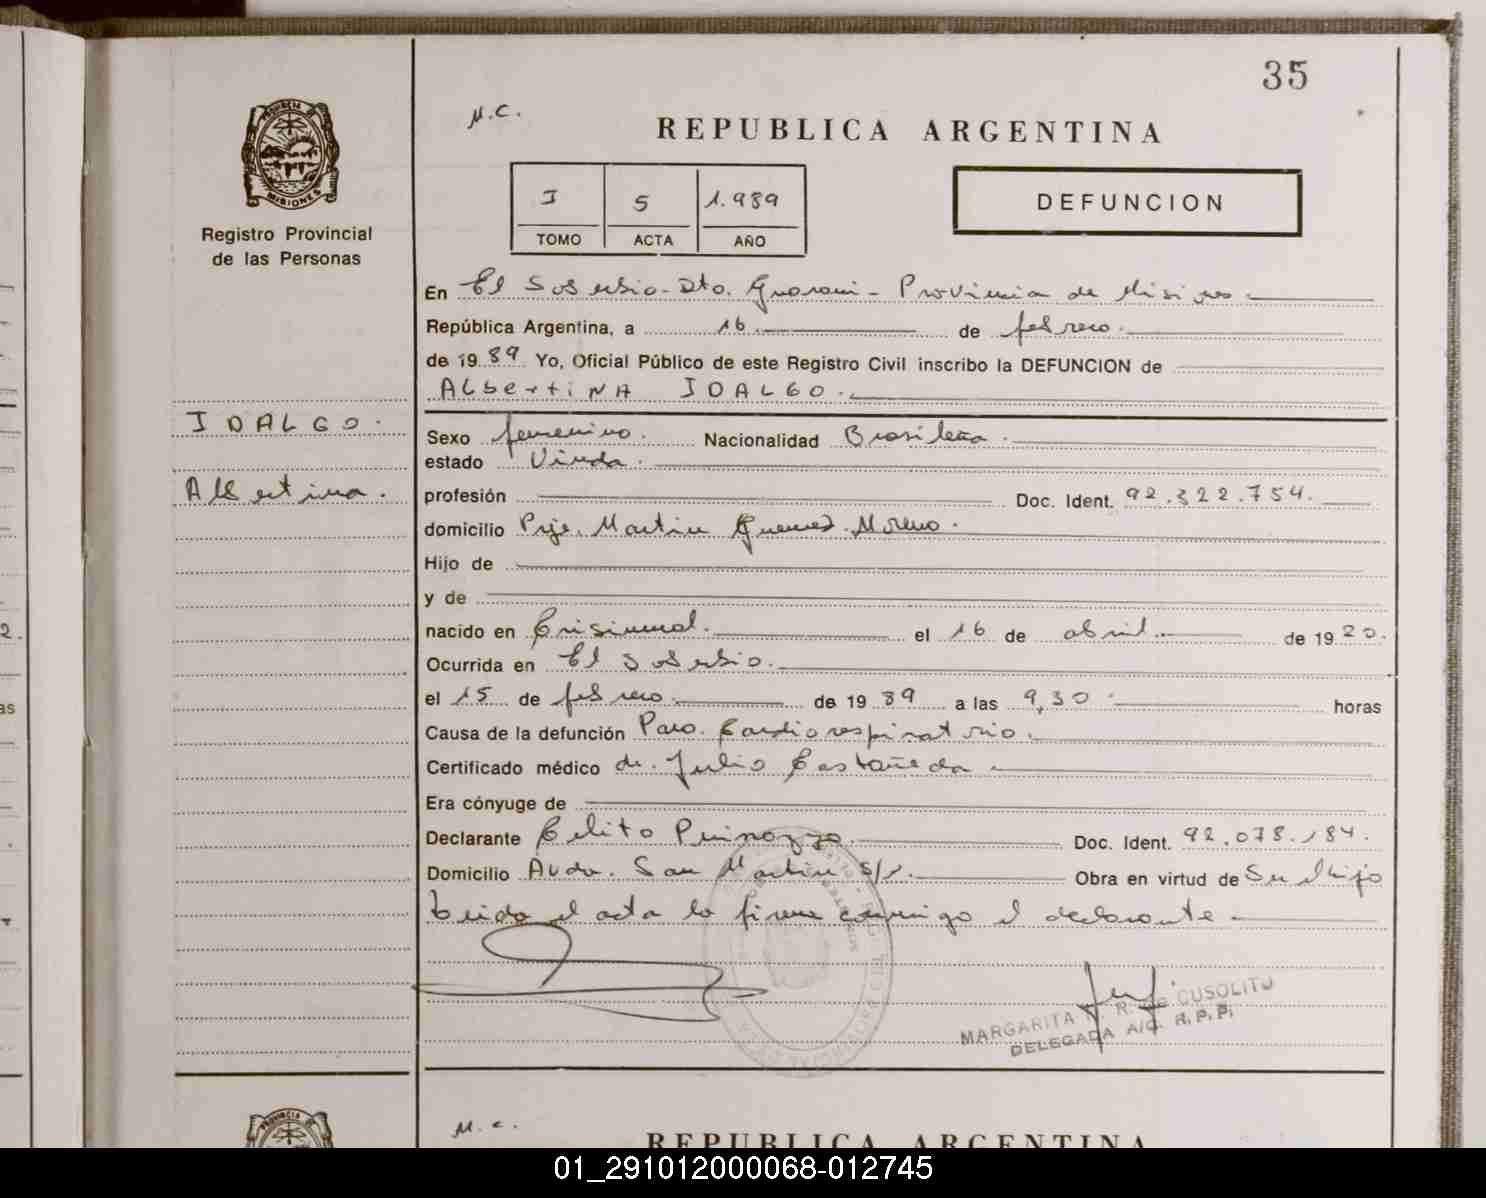 35
M.C.
REPUBLICA ARGENTINA
PROVINCIA
MISIONES
Registro Provincial
de las Personas
I 5 1.989
TOMO ACTA AÑO
DEFUNCION
En El Soberbio-Dto. Guarani-Provincia de Misiones
República Argentina, a 16 de febrero.
de 1989 Yo, Oficial Público de este Registro Civil inscribo la DEFUNCION de
AlbertiNA IDALGO.
IDALGO.
Albertina.
Sexo femenino. Nacionalidad Brasileña.
estado Viuda.
profesión Doc. Ident. 92.322.754.
domicilio Pje. Martin Guemes-Moreno.
Hijo de
y de
nacido en Crisiumal. el 16 de abril. de 1920.
Ocurrida en El Soberbio.
el 15 de febrero. de 1989 a las 9,30 horas
Causa de la defunción Paro Cardiorespiratorio.
Certificado médico dr. Julio Castañeda
Era cónyuge de
Declarante Celito Doc. Ident. 92.078.184.
Domicilio Avda. San Martin S/N. Obra en virtud de Su hijo
Leida el acta la firma conmigo el declarante
MARGARITA R. de CUSOLITO
DELEGADA A/C. R.P.P.
M.C.
PROVINCIA
REPUBLICA ARGENTINA
01_291012000068-012745